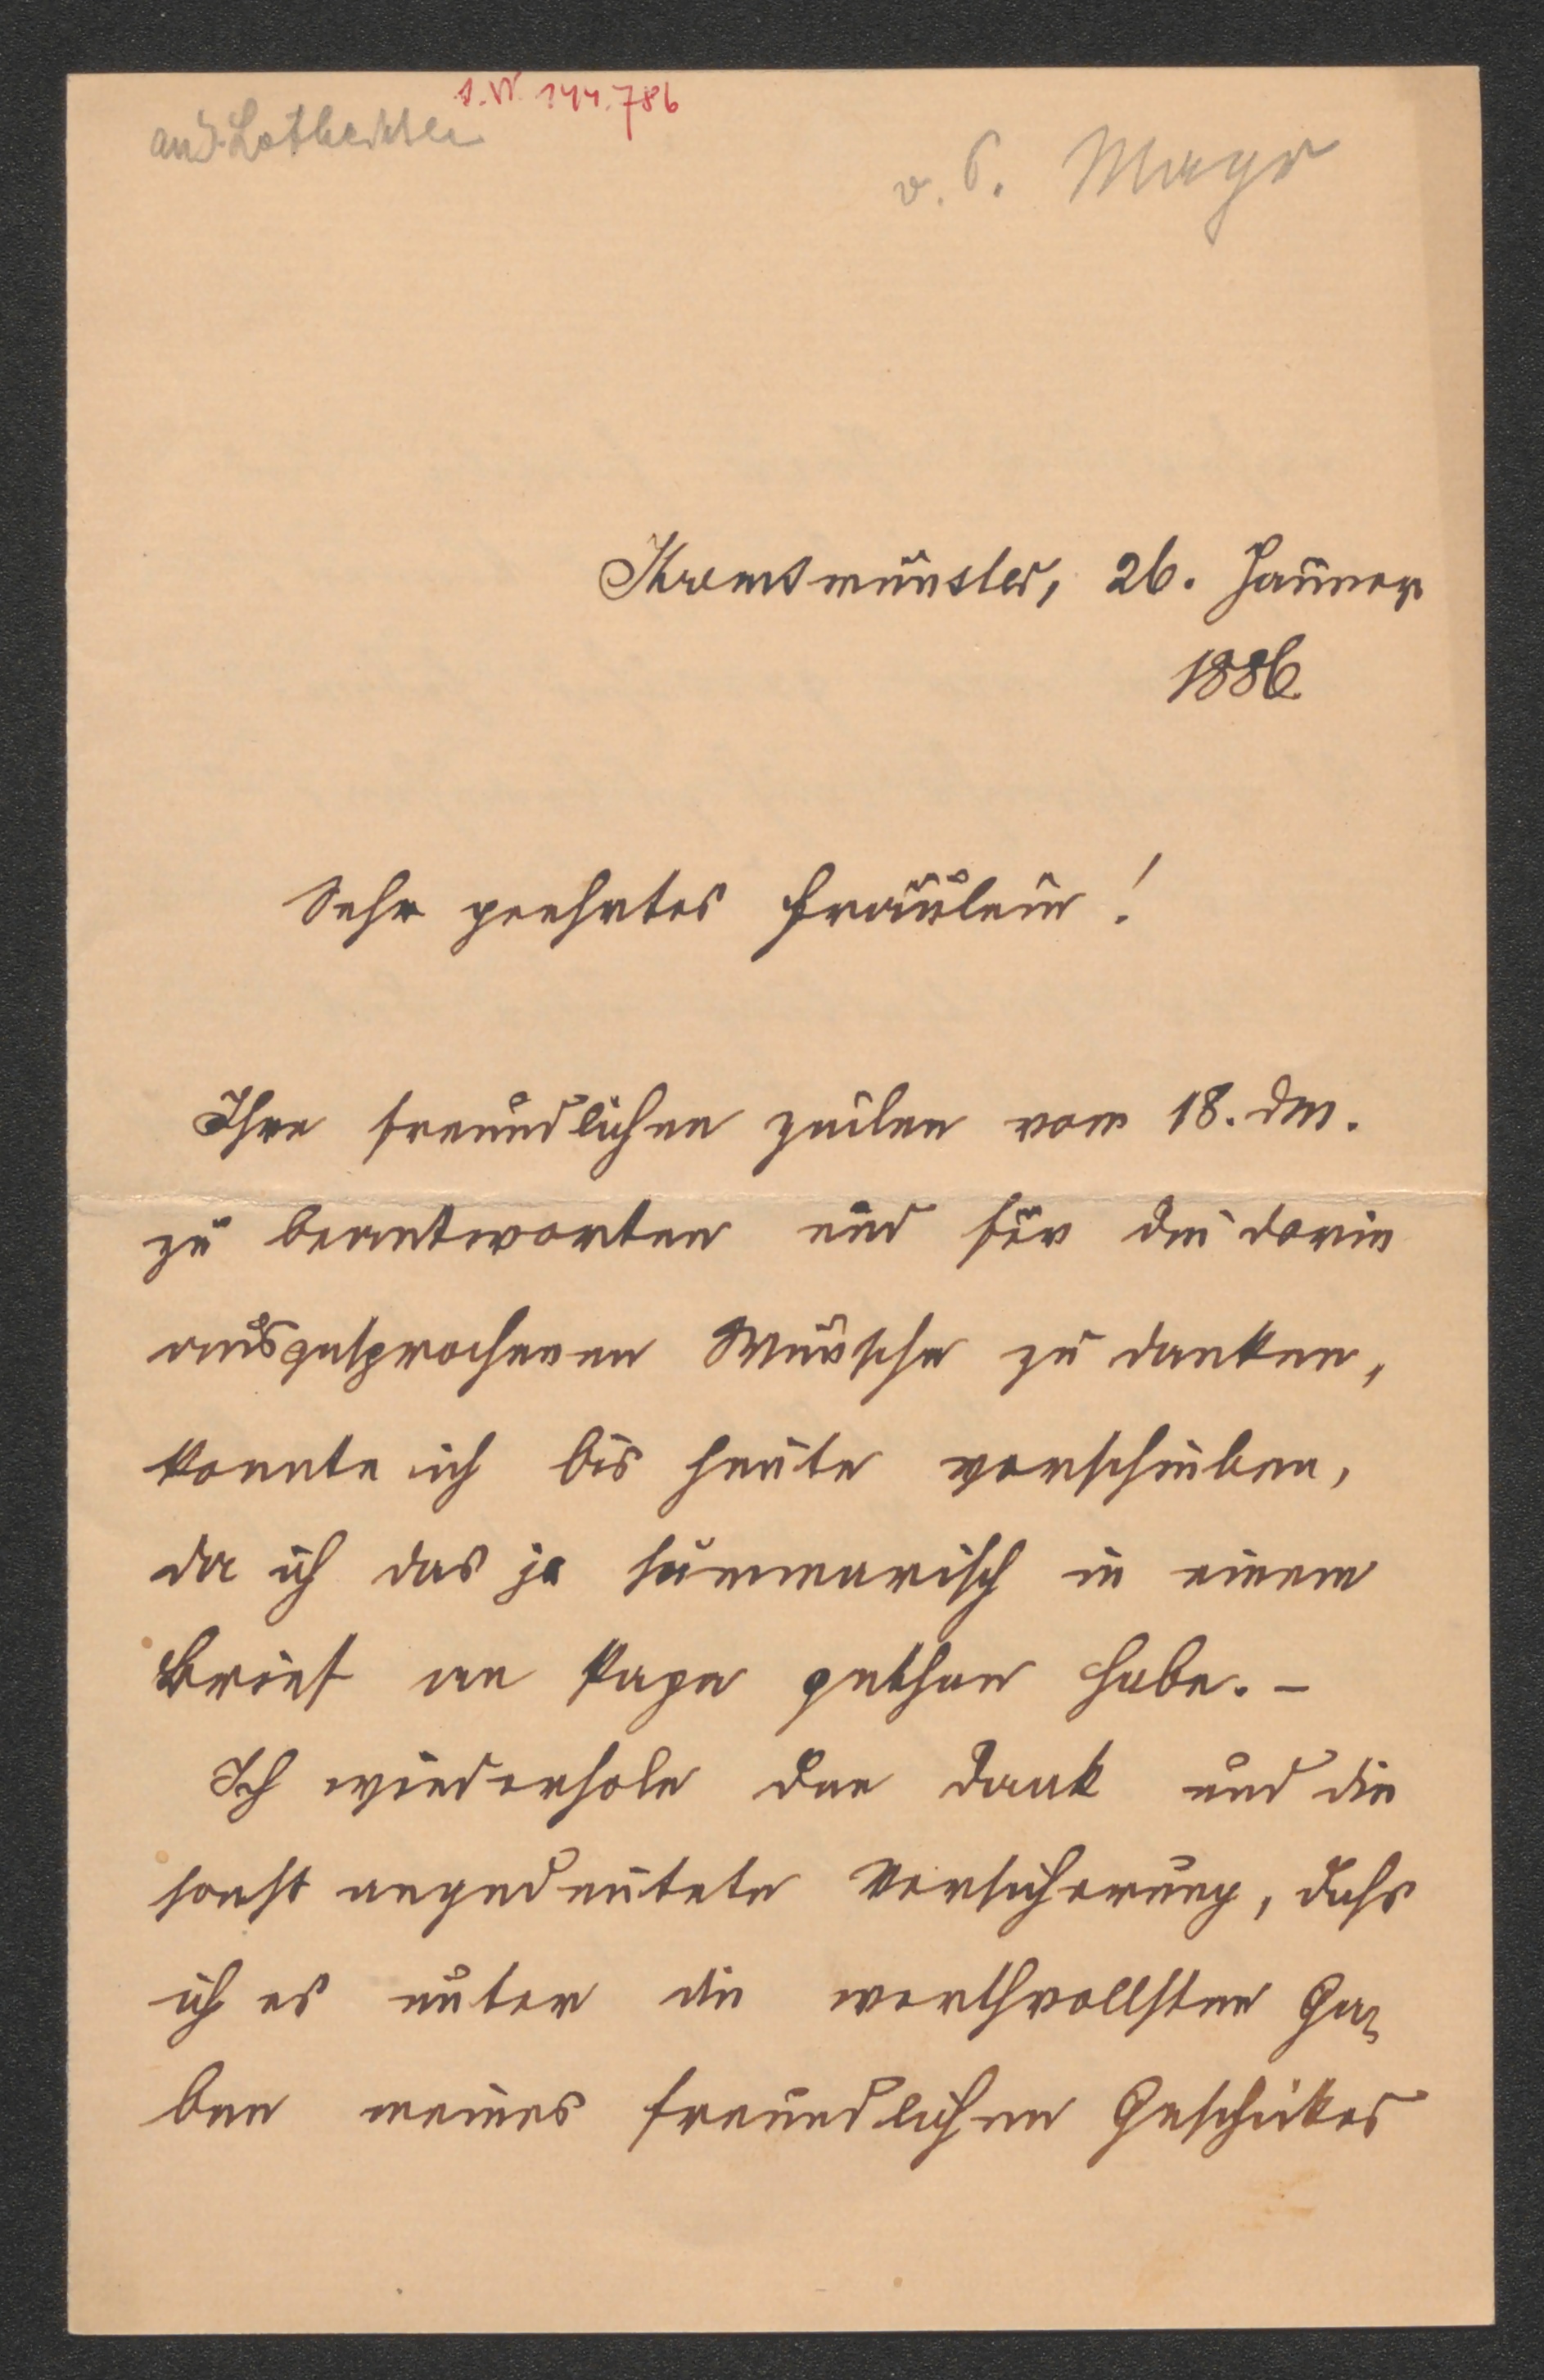 I. N. 144.786
v. P. Mayr
Kremsmünster, 26. Jänner
1886
Sehr geehrtes Fräulein!
Ihre freundlichen Zeilen vom 18. dM.
zu beantworten und für die darin
ausgesprochenen Wünsche zu danken,
konnte ich bis heute verschieben,
da ich das ja summarisch in einem
Brief an Papa gethan habe. –
Ich wiederhole den Dank und die
sonst angedeutete Versicherung, dass
ich es unter die werthvollsten Ga-
ben meines freundlichen Geschickes